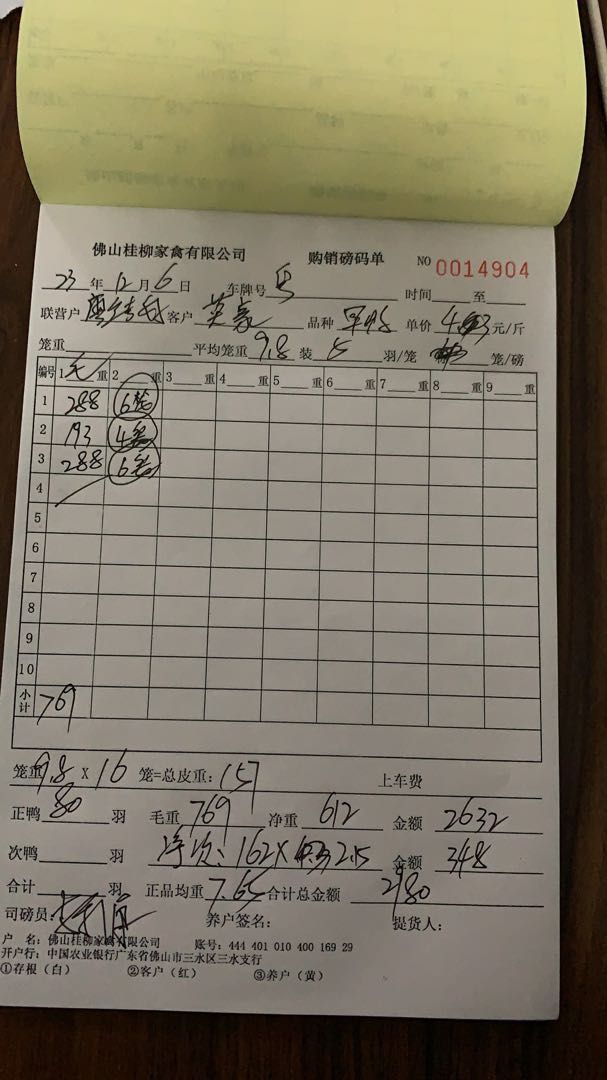 佛山桂柳家禽有限公司 购销磅码单 NO 0014904
23 年 12 月 6 日 车牌号 时间 至
联营户 客户 英豪 品种 单价 4. 3 元/斤
笼重 平均笼重 9.8 装 5 羽/笼 笼/磅
编号 1 毛 重 2 重 3 重 4 重 5 重 6 重 7 重 8 重 9 重
1 288 6笼
2 193 4笼
3 288 6笼
4
5
6
7
8
9
10
小计 769
笼重 9.8 X 16 笼=总皮重: 157 上车费
正鸭 80 羽 毛重 769 净重 612 金额 2632
次鸭 羽 162X 2.15 金额 348
合计 羽 正品均重 7.65 合计总金额 2980
司磅员: 养户签名: 提货人:
户 名: 佛山桂柳家禽有限公司 账号: 444 401 010 400 169 29
开户行: 中国农业银行广东省佛山市三水区三水支行
①存根（白） ②客户（红） ③养户（黄）